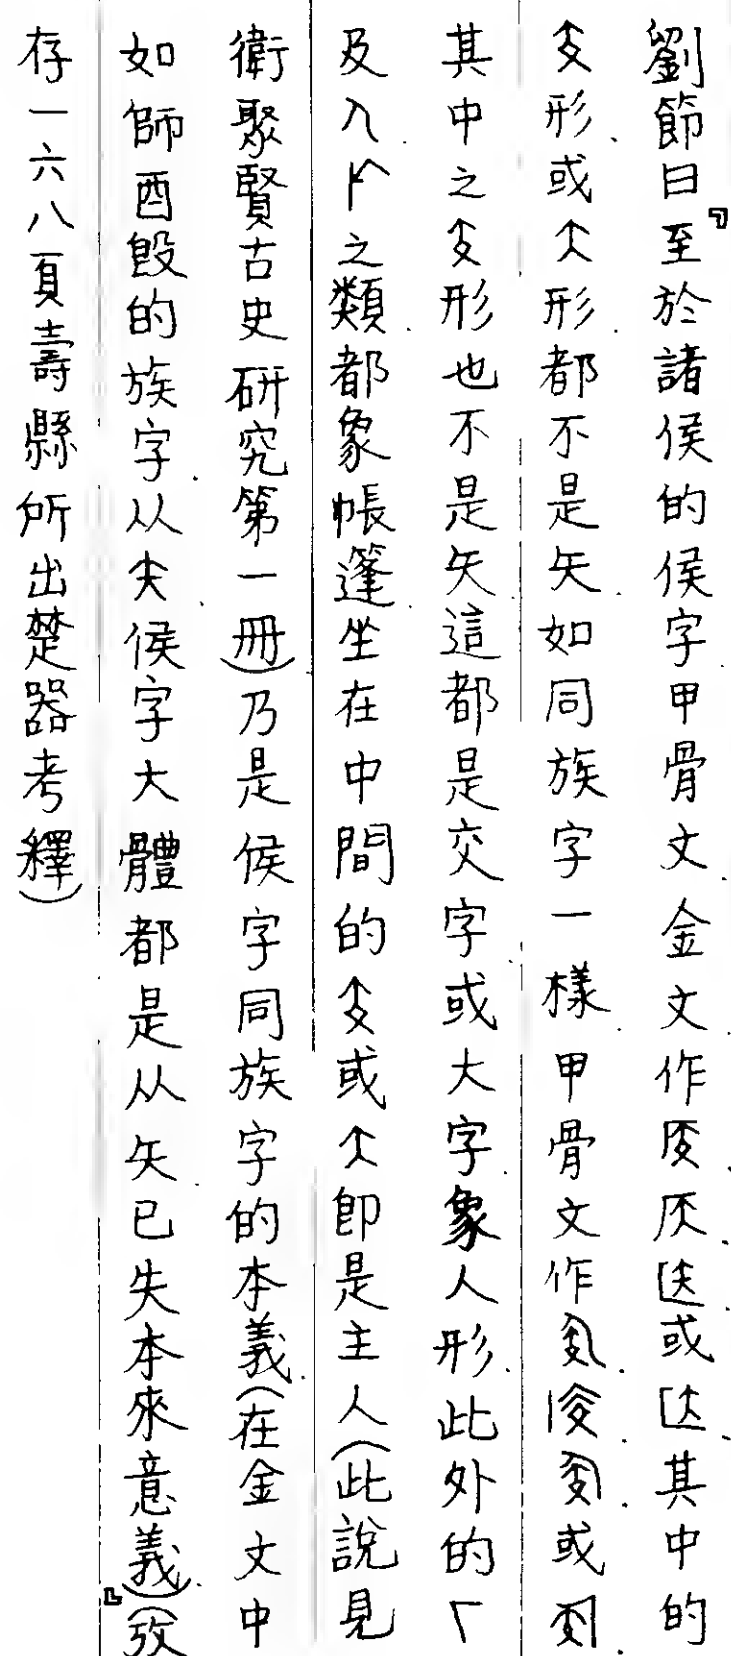 劉節曰『至於諸侯的侯字甲骨文.金文作.或其中的
形.或大形.都不是矢.如同族字一樣.甲骨文作..或.
其中之形也不是矢這都是交字.或大字.象人形.此外的
及入.之類.都象帳蓬.坐在中間的或大即是主人(此說見
衛聚賢古史研究第一冊)乃是侯字同族字的本義.(在金文中
如師酉毁的族字.从.侯字大體都是从矢.已失本來意義.)』(攷
存一六八頁壽縣所出楚器考釋)